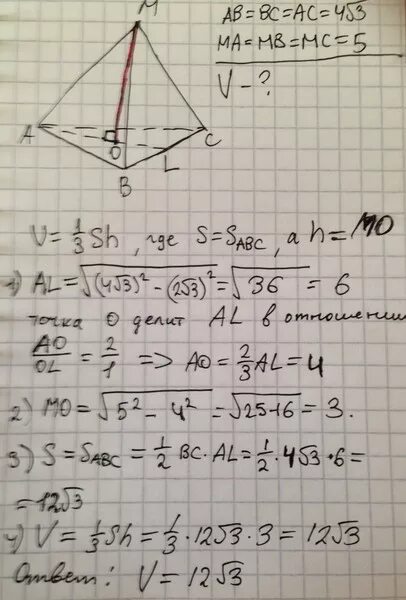 M
AB=BC=AC=4√3
MA=MB=MC=5
V-?
A
O
C
L
B
V=1/3 Sh, где S=S_ABC, а h=MO
1) AL=√((4√3)²-(2√3)²)=√36=6
точка O делит AL в отношении
AO/OL=2/1 => AO=2/3 AL=4
2) MO=√(5²-4²)=√(25-16)=3.
3) S=S_ABC=1/2 BC·AL=1/2·4√3·6=
=12√3
4) V=1/3 Sh=1/3·12√3·3=12√3
Ответ: V=12√3